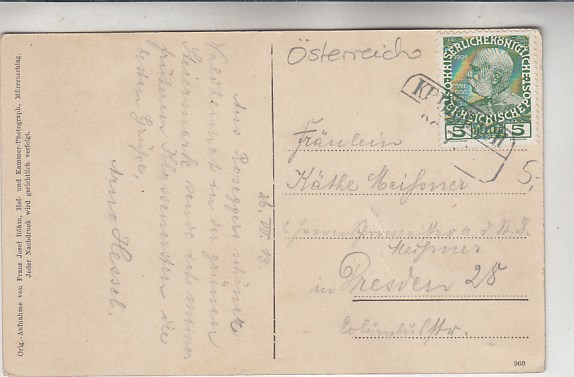 Orig.-Aufnahme von Franz Josef Böhm, Hof- und Kammer-Photograph, Mürzzuschlag.
Jeder Nachdruck wird gerichtlich verfolgt.
26. VIII. 13.
Aus Roseggers schöner
Waldheimat in der grünen
Steiermark sendet meiner
früheren Klassenersten die
besten Grüße,
Arno Hessel.
Österreich
KAISERLICHEKÖNIGLICHE
ÖSTERREICHISCHE POST
5 5
Fräulein
Käthe Meißner
5,-
a. d.
Meißner
in Dresden 28
Columbusstr.
960